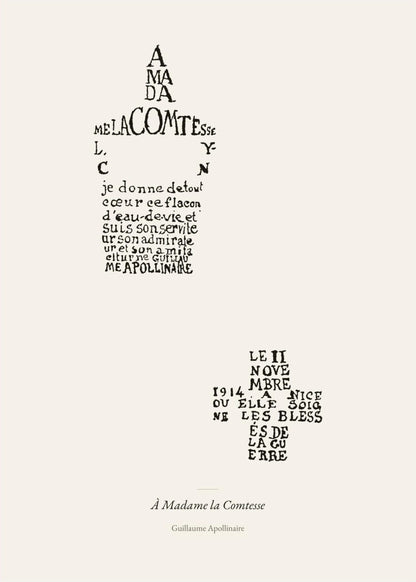 A
MA
DA
ME LA COMTEsse
L. Y-
C N
je donne de tout
cœur ce flacon
d'eau-de-vie et
suis son servite
ur son admirate
ur et son ami ta
citurne GUILLAU
ME APOLLINAIRE
LE 11
NOVE
MBRE
1914 A NICE
OU ELLE SOIG
NE LES BLESS
ÉS DE
LA GU
ERRE
À Madame la Comtesse
Guillaume Apollinaire